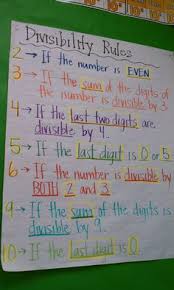 Divisibility Rules
2 → If the number is EVEN
3 → If the sum of the digits of
the number is divisible by 3.
4 → If the last two digits are
divisible by 4.
5 → If the last digit is 0 or 5
6 → If the number is divisible by
BOTH 2 and 3
9 → If the sum of the digits is
divisible by 9.
10 → If the last digit is 0.